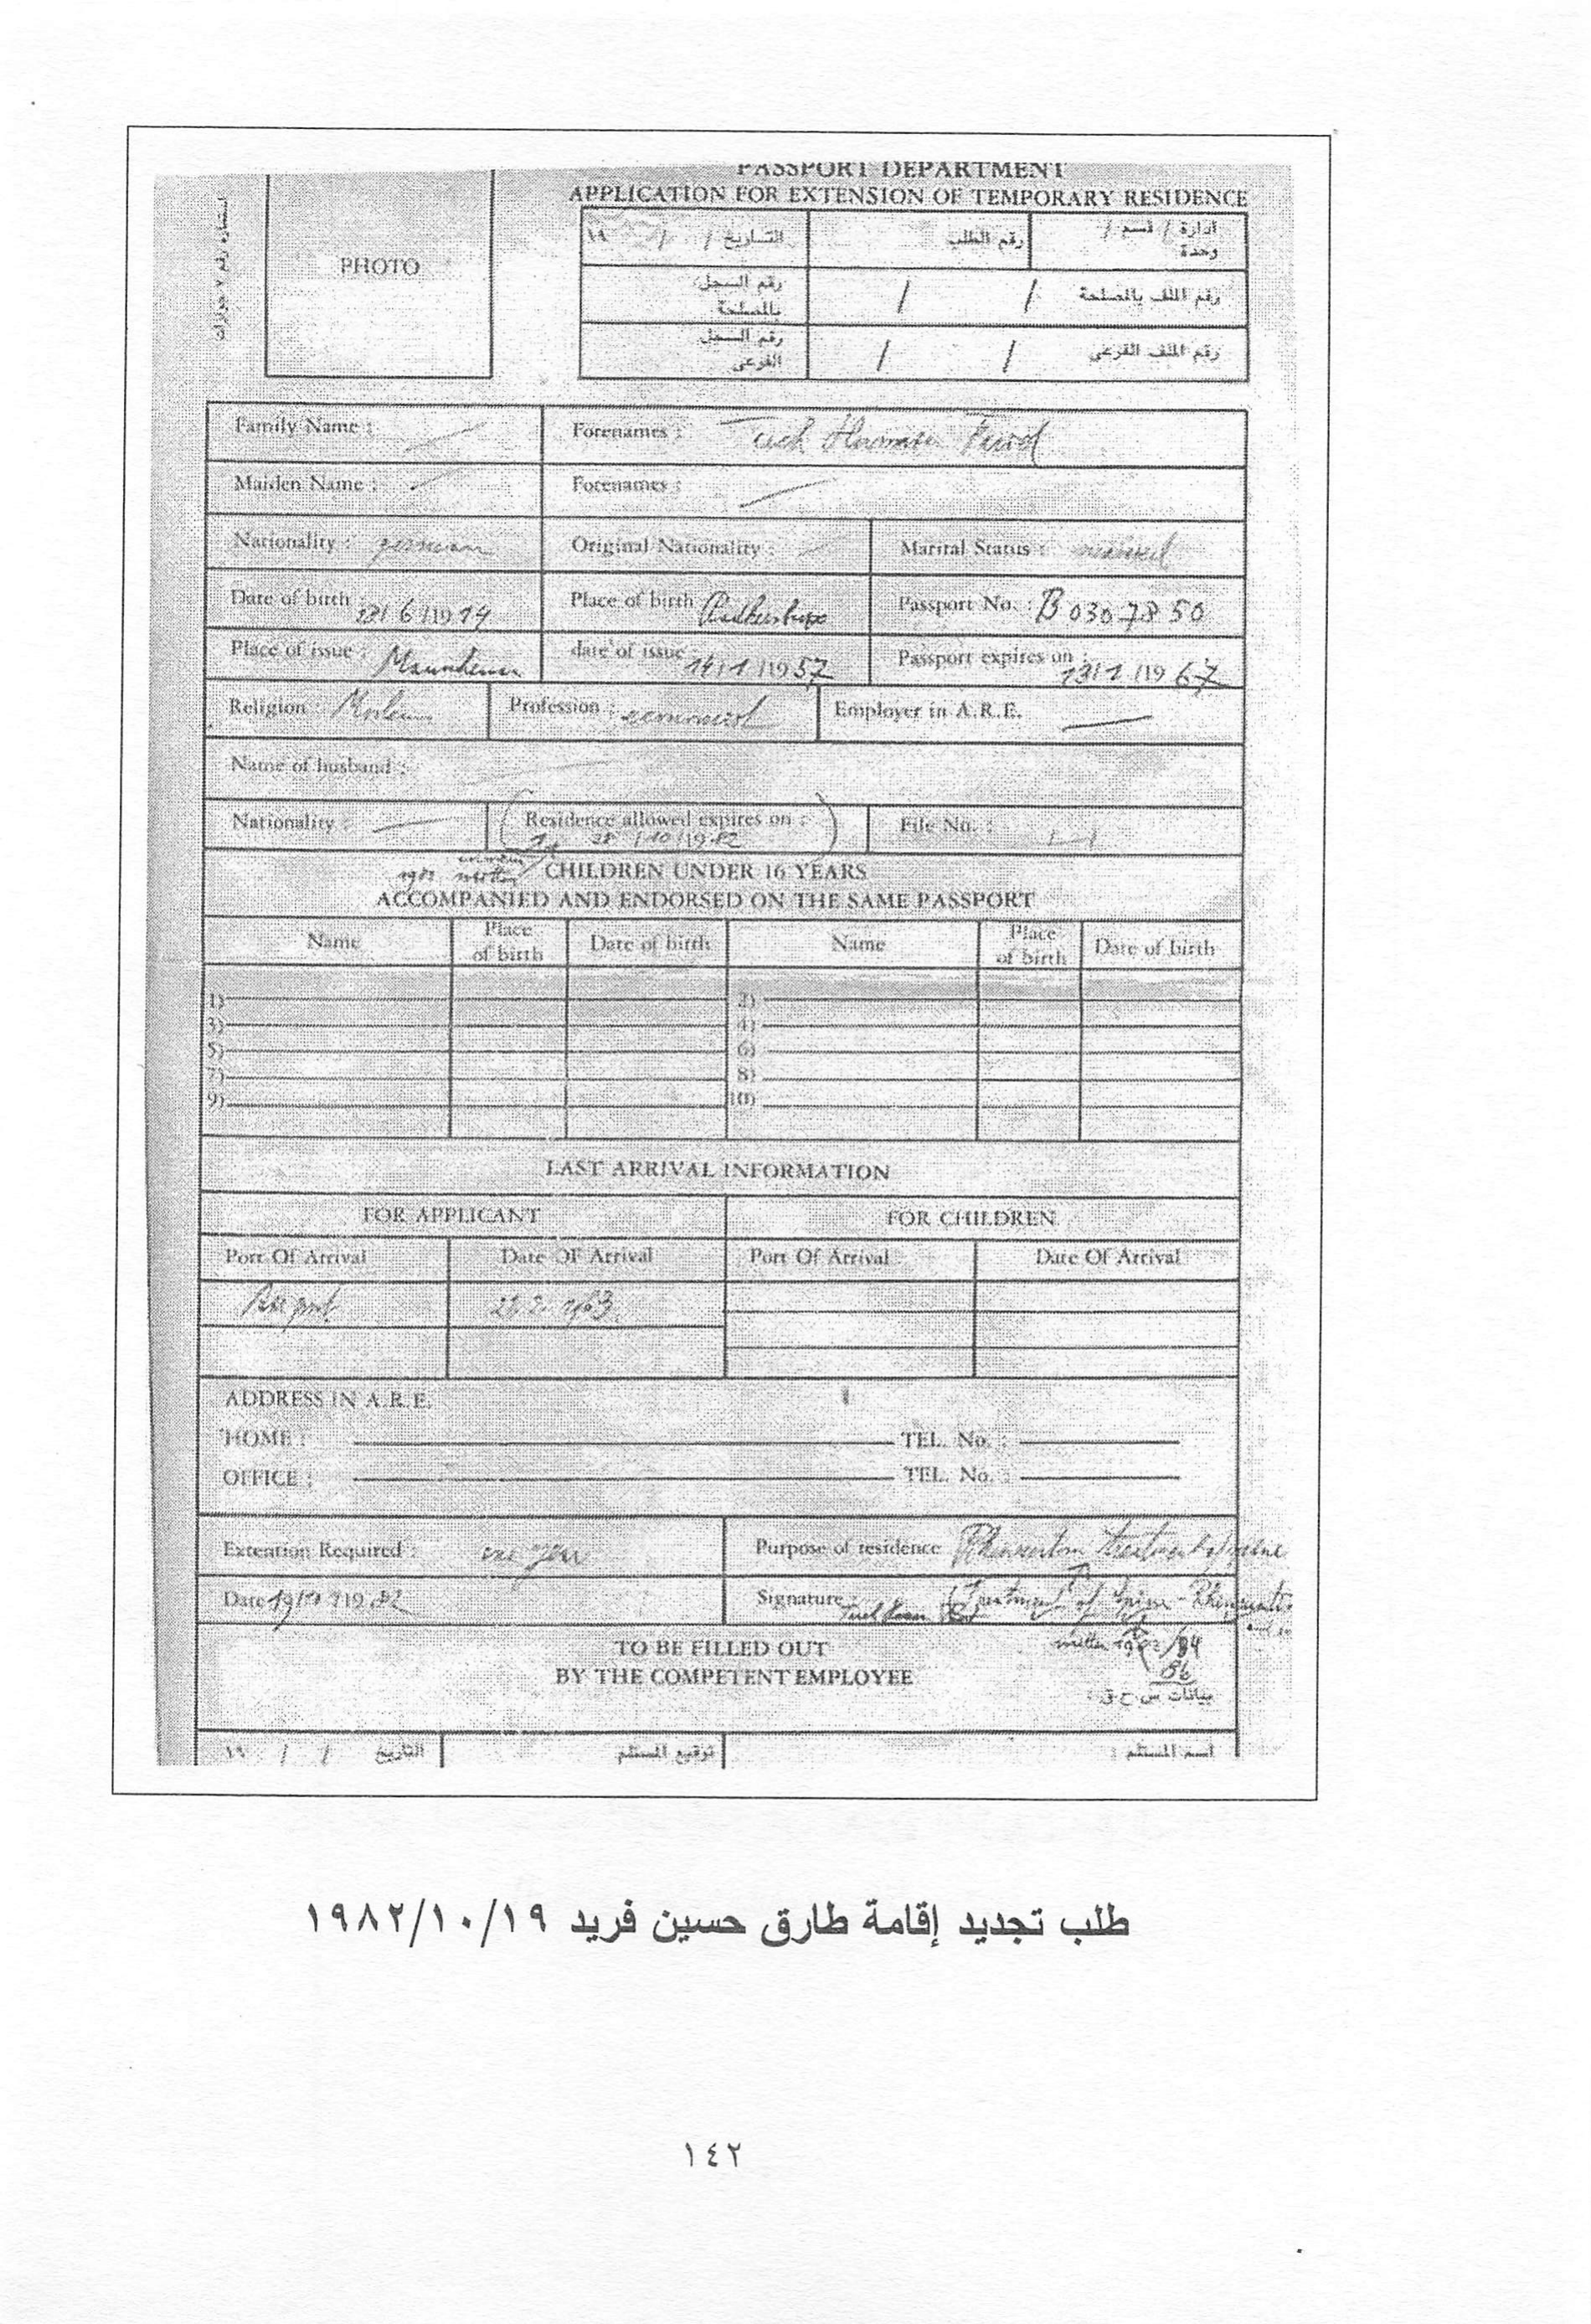 PASSPORT DEPARTMENT
APPLICATION FOR EXTENSION OF TEMPORARY RESIDENCE
استمارة رقم ٧ جوازات
PHOTO
ادارة / قسم / وحدة
رقم الطلب
التاريخ / / ١٩
رقم الملف بالمصلحة / /
رقم السجل بالمصلحة
رقم الملف الفرعى / /
رقم السجل الفرعى
Family Name :
Forenames :
Maiden Name :
Forenames :
Nationality : german
Original Nationality :
Marital Status : married
Date of birth 28/6/1914
Place of birth
Passport No. : B 0307850
Place of issue : Mannheim
date of issue : 14/1/1957
Passport expires on : 13/1/1967
Religion : Moslem
Profession :
Employer in A.R.E.
Name of husband :
Nationality :
Residence allowed expires on : 28/10/1982
File No. :
CHILDREN UNDER 16 YEARS
ACCOMPANIED AND ENDORSED ON THE SAME PASSPORT
Name Place of birth Date of birth Name Place of birth Date of birth
1) 2)
3) 4)
5) 6)
7) 8)
9) 10)
LAST ARRIVAL INFORMATION
FOR APPLICANT FOR CHILDREN
Port Of Arrival Date OF Arrival Port Of Arrival Date Of Arrival
1963
ADDRESS IN A.R.E.
HOME : TEL. No. :
OFFICE : TEL. No. :
Extention Required : one year
Purpose of residence
Date 19/10/1982
Signature :
TO BE FILLED OUT
BY THE COMPETENT EMPLOYEE
بيانات س.ح.ق :
اسم المستلم :
توقيع المستلم
التاريخ / / ١٩
طلب تجديد إقامة طارق حسين فريد ١٩٨٢/١٠/١٩
١٤٢